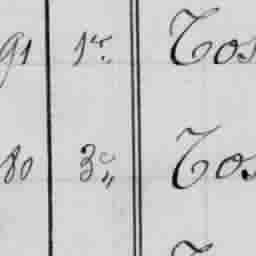 91 1er. Tos
80 3e„ Tos